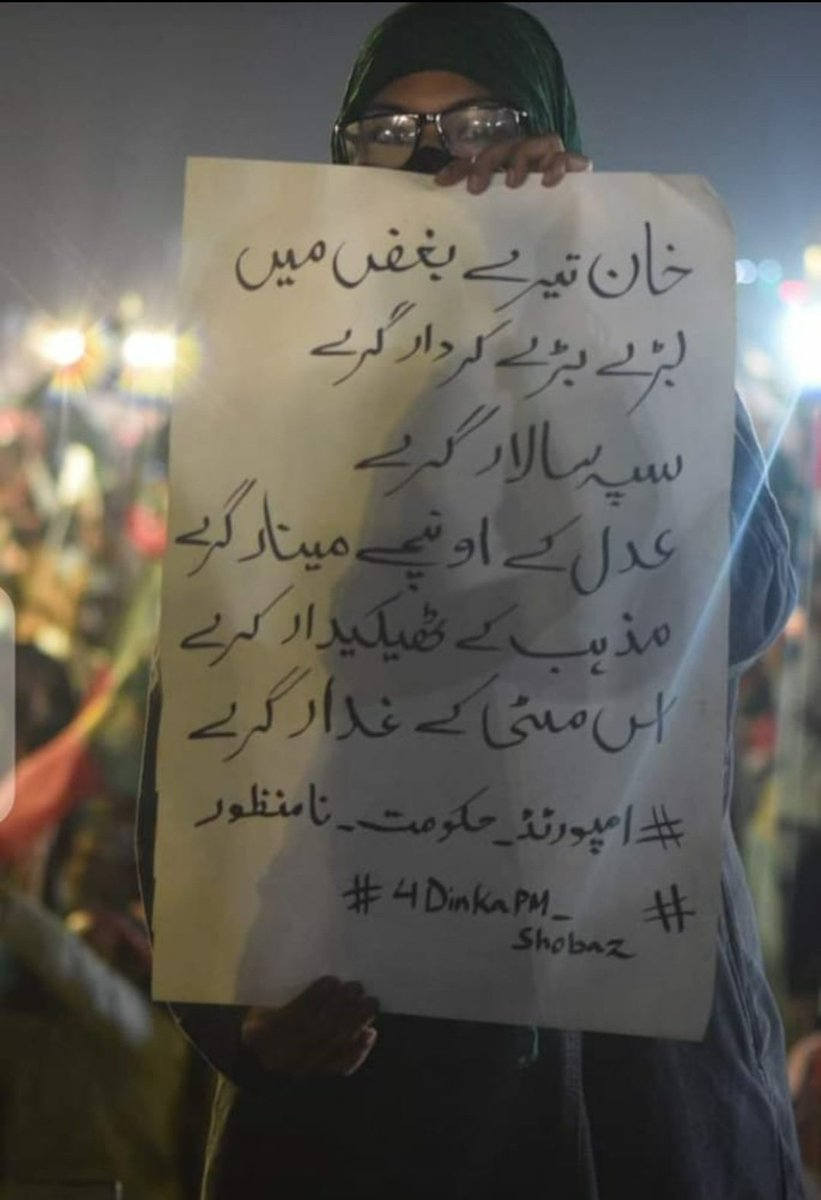 خان تیرے بغض میں
بڑے بڑے کردار گرے
سپہ سالار گرے
عدل کے اونچے مینار گرے
مذہب کے ٹھیکیدار گرے
اس مٹی کے غدار گرے
#امپورٹڈ_حکومت_نامنظور
# 4DinkaPM_ #
Shobaz